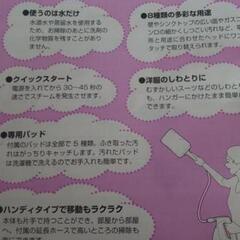 ●使うのは水だけ
水道水や蒸留水を使用する
ため、お掃除のあとに洗剤の
化学物質を残すことはあり
ません。
●8種類の多彩な用途
壁やシンクトップの広い面やガスコ
ンロの細かくしつこい汚れなど、
所と用途に合わせたヘッドにワン
タッチで取り替えられます。
●クイックスタート
電源を入れてから30~45秒の
速さでスチームを放出できます。
●洋服のしわとりに
むずかしいスーツなどのしわとり
が、ハンガーにかけたまま簡単に
できます。
●専用パッド
付属のパッドは全部で5種類
あります。ふき取った汚
れはがっちりキャッチします。汚れたパッド
は洗濯機で洗えるのでお手入れも簡単です。
●ハンディタイプで移動もラクラク
本体も片手で持つことができ、部屋から部屋
へ、付属の延長ホースで高いところの掃除に
簡単にできます。